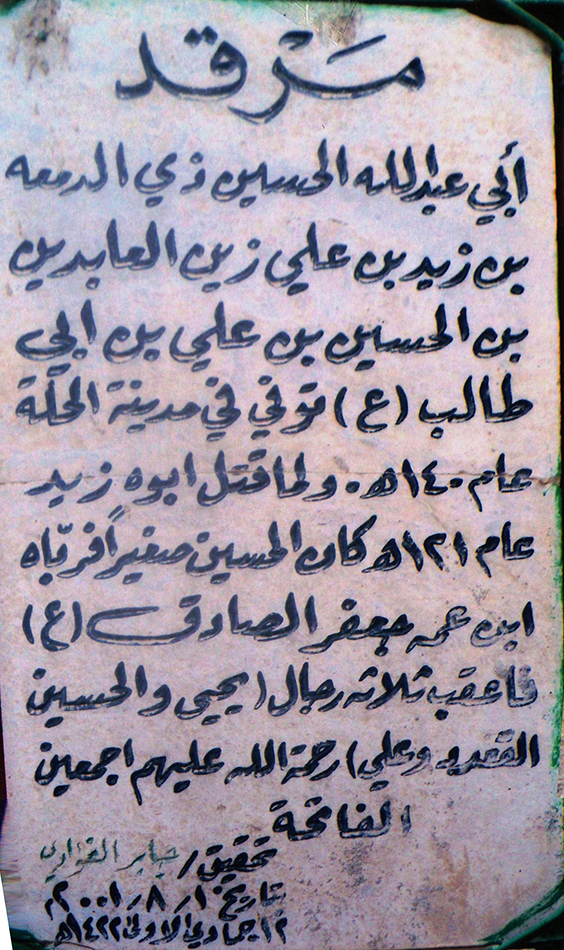 مَرْقد
أبي عبدالله الحسين ذي الدمعه
بن زيد بن علي زين العابدين
بن الحسين بن علي بن ابي
طالب (ع) توفي في مدينة الحلّة
عام ١٤٠هـ. ولما قتل ابوه زيد
عام ١٢١هـ كان الحسين صغيراً فربّاه
ابن عمه جعفر الصادق (ع)
فاعقب ثلاثه رجال (يحيى والحسين
القعدد وعلي) رحمة الله عليهم اجمعين
الفاتحة
تحقيق / جابر
بتاريخ ١ / ٨ / ٢٠٠١م
١٢ جمادي الاولى ١٤٢٢هـ